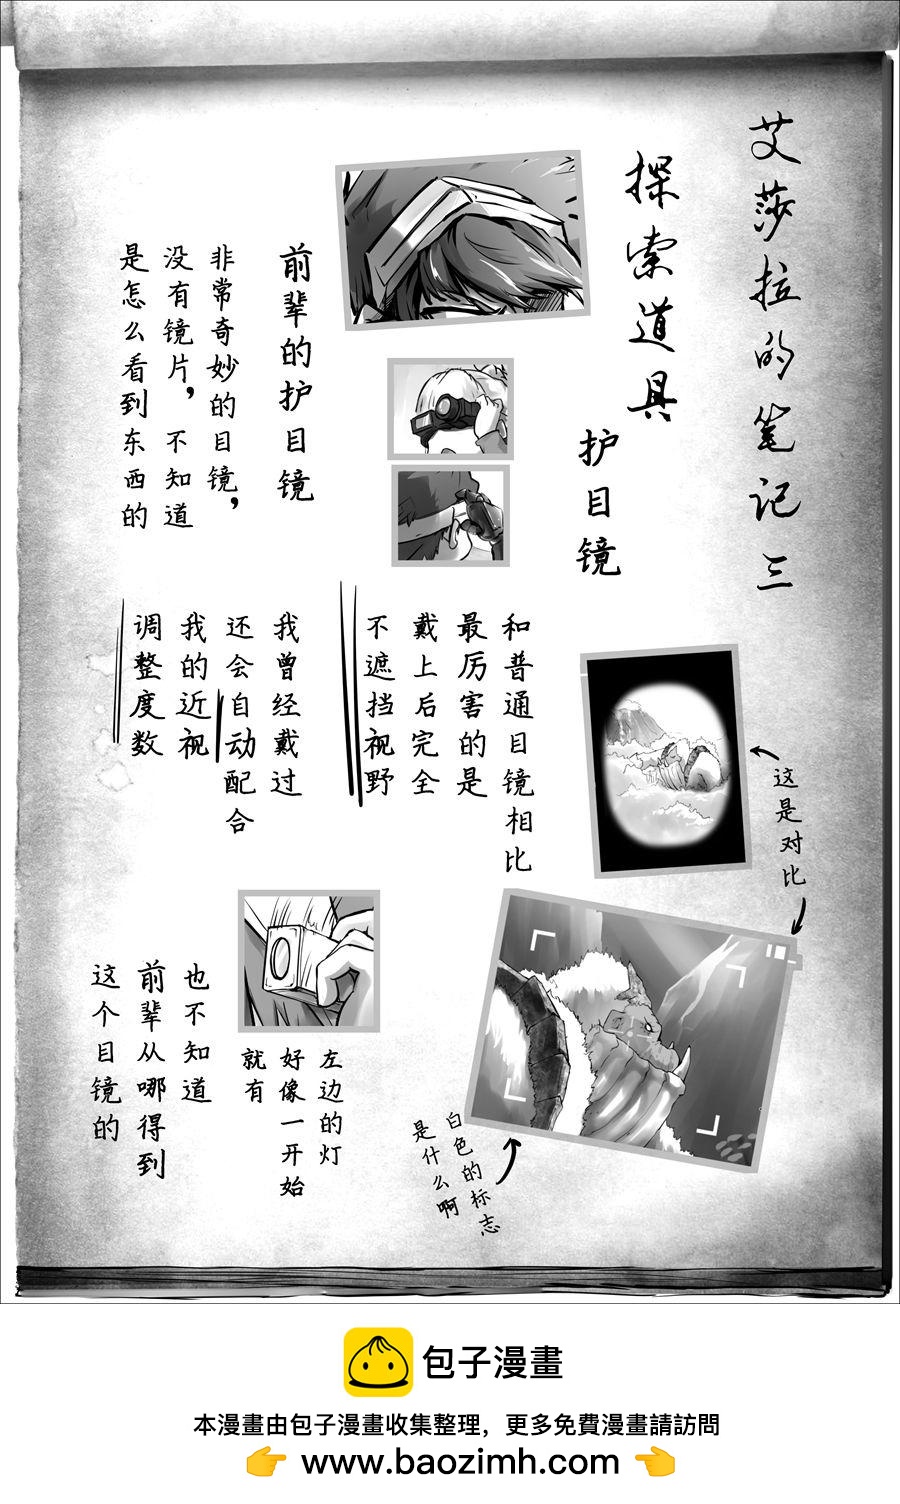 艾莎拉的笔记三
探索道具
护目镜
前辈的护目镜
非常奇妙的目镜，
没有镜片，不知道
是怎么看到东西的
和普通目镜相比
最厉害的是
戴上后完全
不遮挡视野
我曾经戴过
还会自动配合
我的近视
调整度数
这是对比
白色的标志
是什么啊
左边的灯
好像一开始
就有
也不知道
前辈从哪得到
这个目镜的
包子漫畫
本漫畫由包子漫畫收集整理，更多免費漫畫請訪問
👉 www.baozimh.com 👈